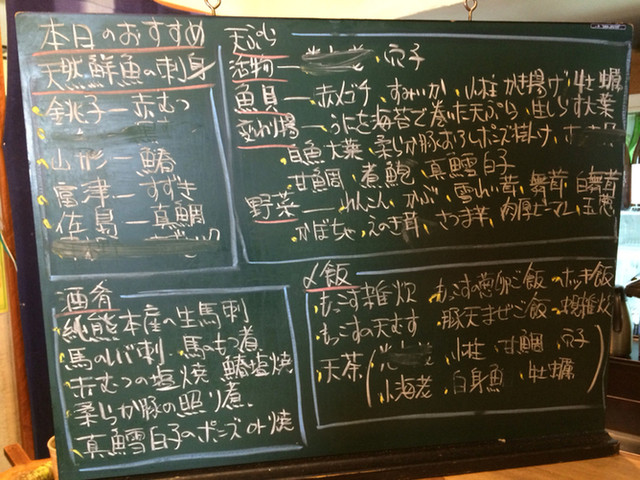 本日のおすすめ
天然鮮魚の刺身
銚子ー赤むつ
山形ー鰆
富津ーすずき
佐島ー真鯛
天ぷら
活物ー 穴子
魚貝ー赤メゴチ、すみいか、小柱かき揚げ、牡蠣
変わり揚ーうにを海苔で巻いた天ぷら、生しらす大葉
白魚大葉、柔らか豚おろしポンズ掛け、
甘鯛、煮鮑、真鱈白子
野菜ーれんこん、かぶ、雪れい茸、舞茸、白舞茸
かぼちゃ、えのき茸、さつま芋、肉厚ピーマン、玉葱
酒肴
純熊本産の生馬刺
馬のレバ刺、馬のもつ煮
赤むつの塩焼、鰆塩焼
柔らか豚の照り煮
真鱈白子のポンズor焼
〆飯
もっこす雑炊
もっこすの天むす
天茶
もっこすの葱卵ご飯、ホッキ飯
豚天まぜご飯
小柱、甘鯛、穴子
小海老、白身魚、牡蠣